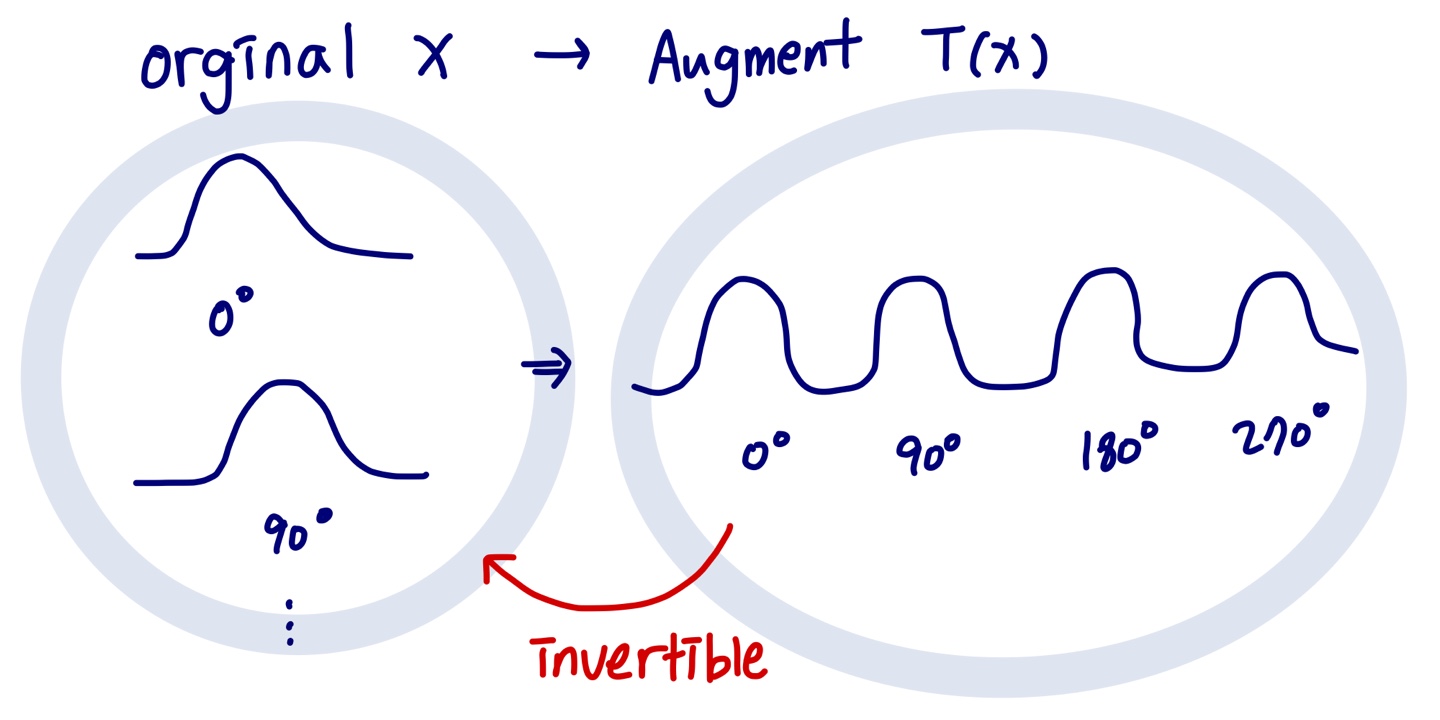 orginal X → Augment T(x)
0°
90°
⋮
⇒
0° 90° 180° 270°
invertible